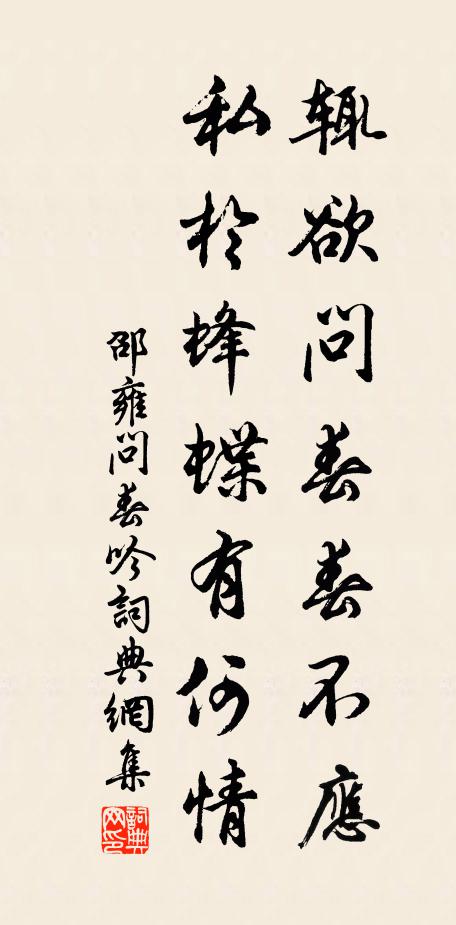 輒欲問春春不應
私於蜂蝶有何情
邵雍問春吟詞典網集
詞典网印